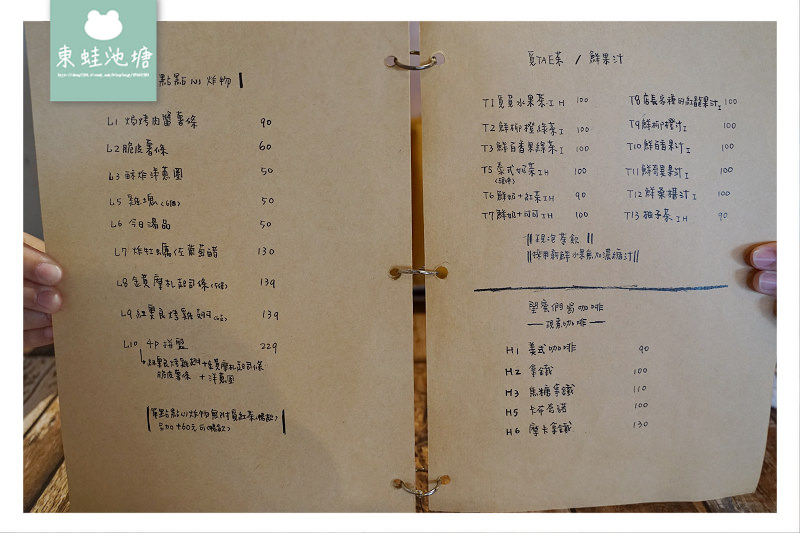 東蛙池塘
點點小炸物
L1 焗烤肉醬薯條 90
L2 脆皮薯條 60
L3 酥炸洋蔥圈 50
L5 雞塊(6個) 50
L6 今日湯品 50
L7 炸牡蠣佐葡萄醋 130
L8 金黃摩札起司條(5條) 139
L9 紅栗良烤雞翅 139
L10 4P拼盤 229
脆皮薯條 + 洋蔥圈
覓TAE茶 / 鮮果汁
T1 覓覓水果茶 I H 100
T2 鮮柳橙綠茶 I 100
T3 鮮百香果綠茶 I 100
T5 泰式奶茶 I H 100
T6 鮮奶+紅茶 I H 90
T7 鮮奶+可可 I H 100
T8 店長多種的紅龍果汁 I 100
T9 鮮柳橙汁 I 100
T10 鮮百香果汁 I 100
T11 鮮奇異果汁 I 100
T12 鮮桑椹汁 I 100
T13 柚子茶 I H 90
現泡茶飲
現煮咖啡
H1 美式咖啡 90
H2 拿鐵 100
H3 焦糖拿鐵 110
H5 卡布奇諾 100
H6 摩卡拿鐵 130